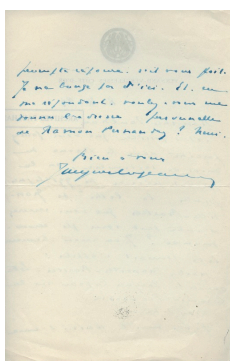 réponse. s'il vous plait.
Je ne bouge pas d'ici. Et, en
me répondant, voulez-vous me
donner l'adresse personnelle
de Ramon Fernandez ? Merci.
Bien à vous